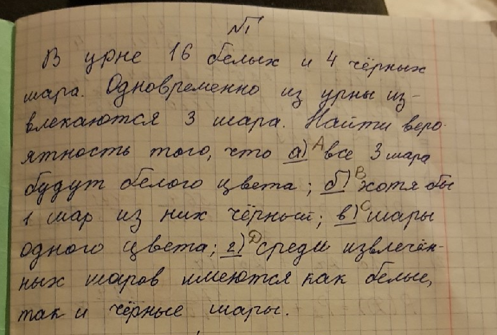 №1
В урне 16 белых и 4 чёрных
шара. Одновременно из урны из-
влекаются 3 шара. Найти веро
ятность того, что а) A все 3 шара
будут белого цвета; б) B хотя бы
1 шар из них чёрный; в) C шары
одного цвета; г) D среди извлечён-
ных шаров имеются как белые,
так и чёрные шары.